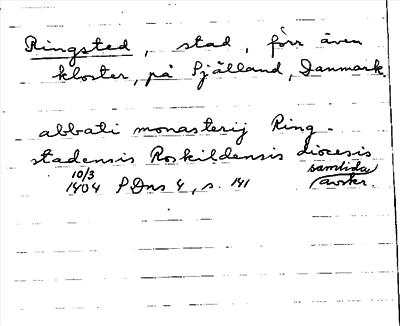 Ringsted, stad, förr även
kloster, på Själland, Danmark.
abbati monasterij Ring-
stadensis Roskildensis diocesis
10/3 samtida
1404 PDns 4, s. 141 avskr.